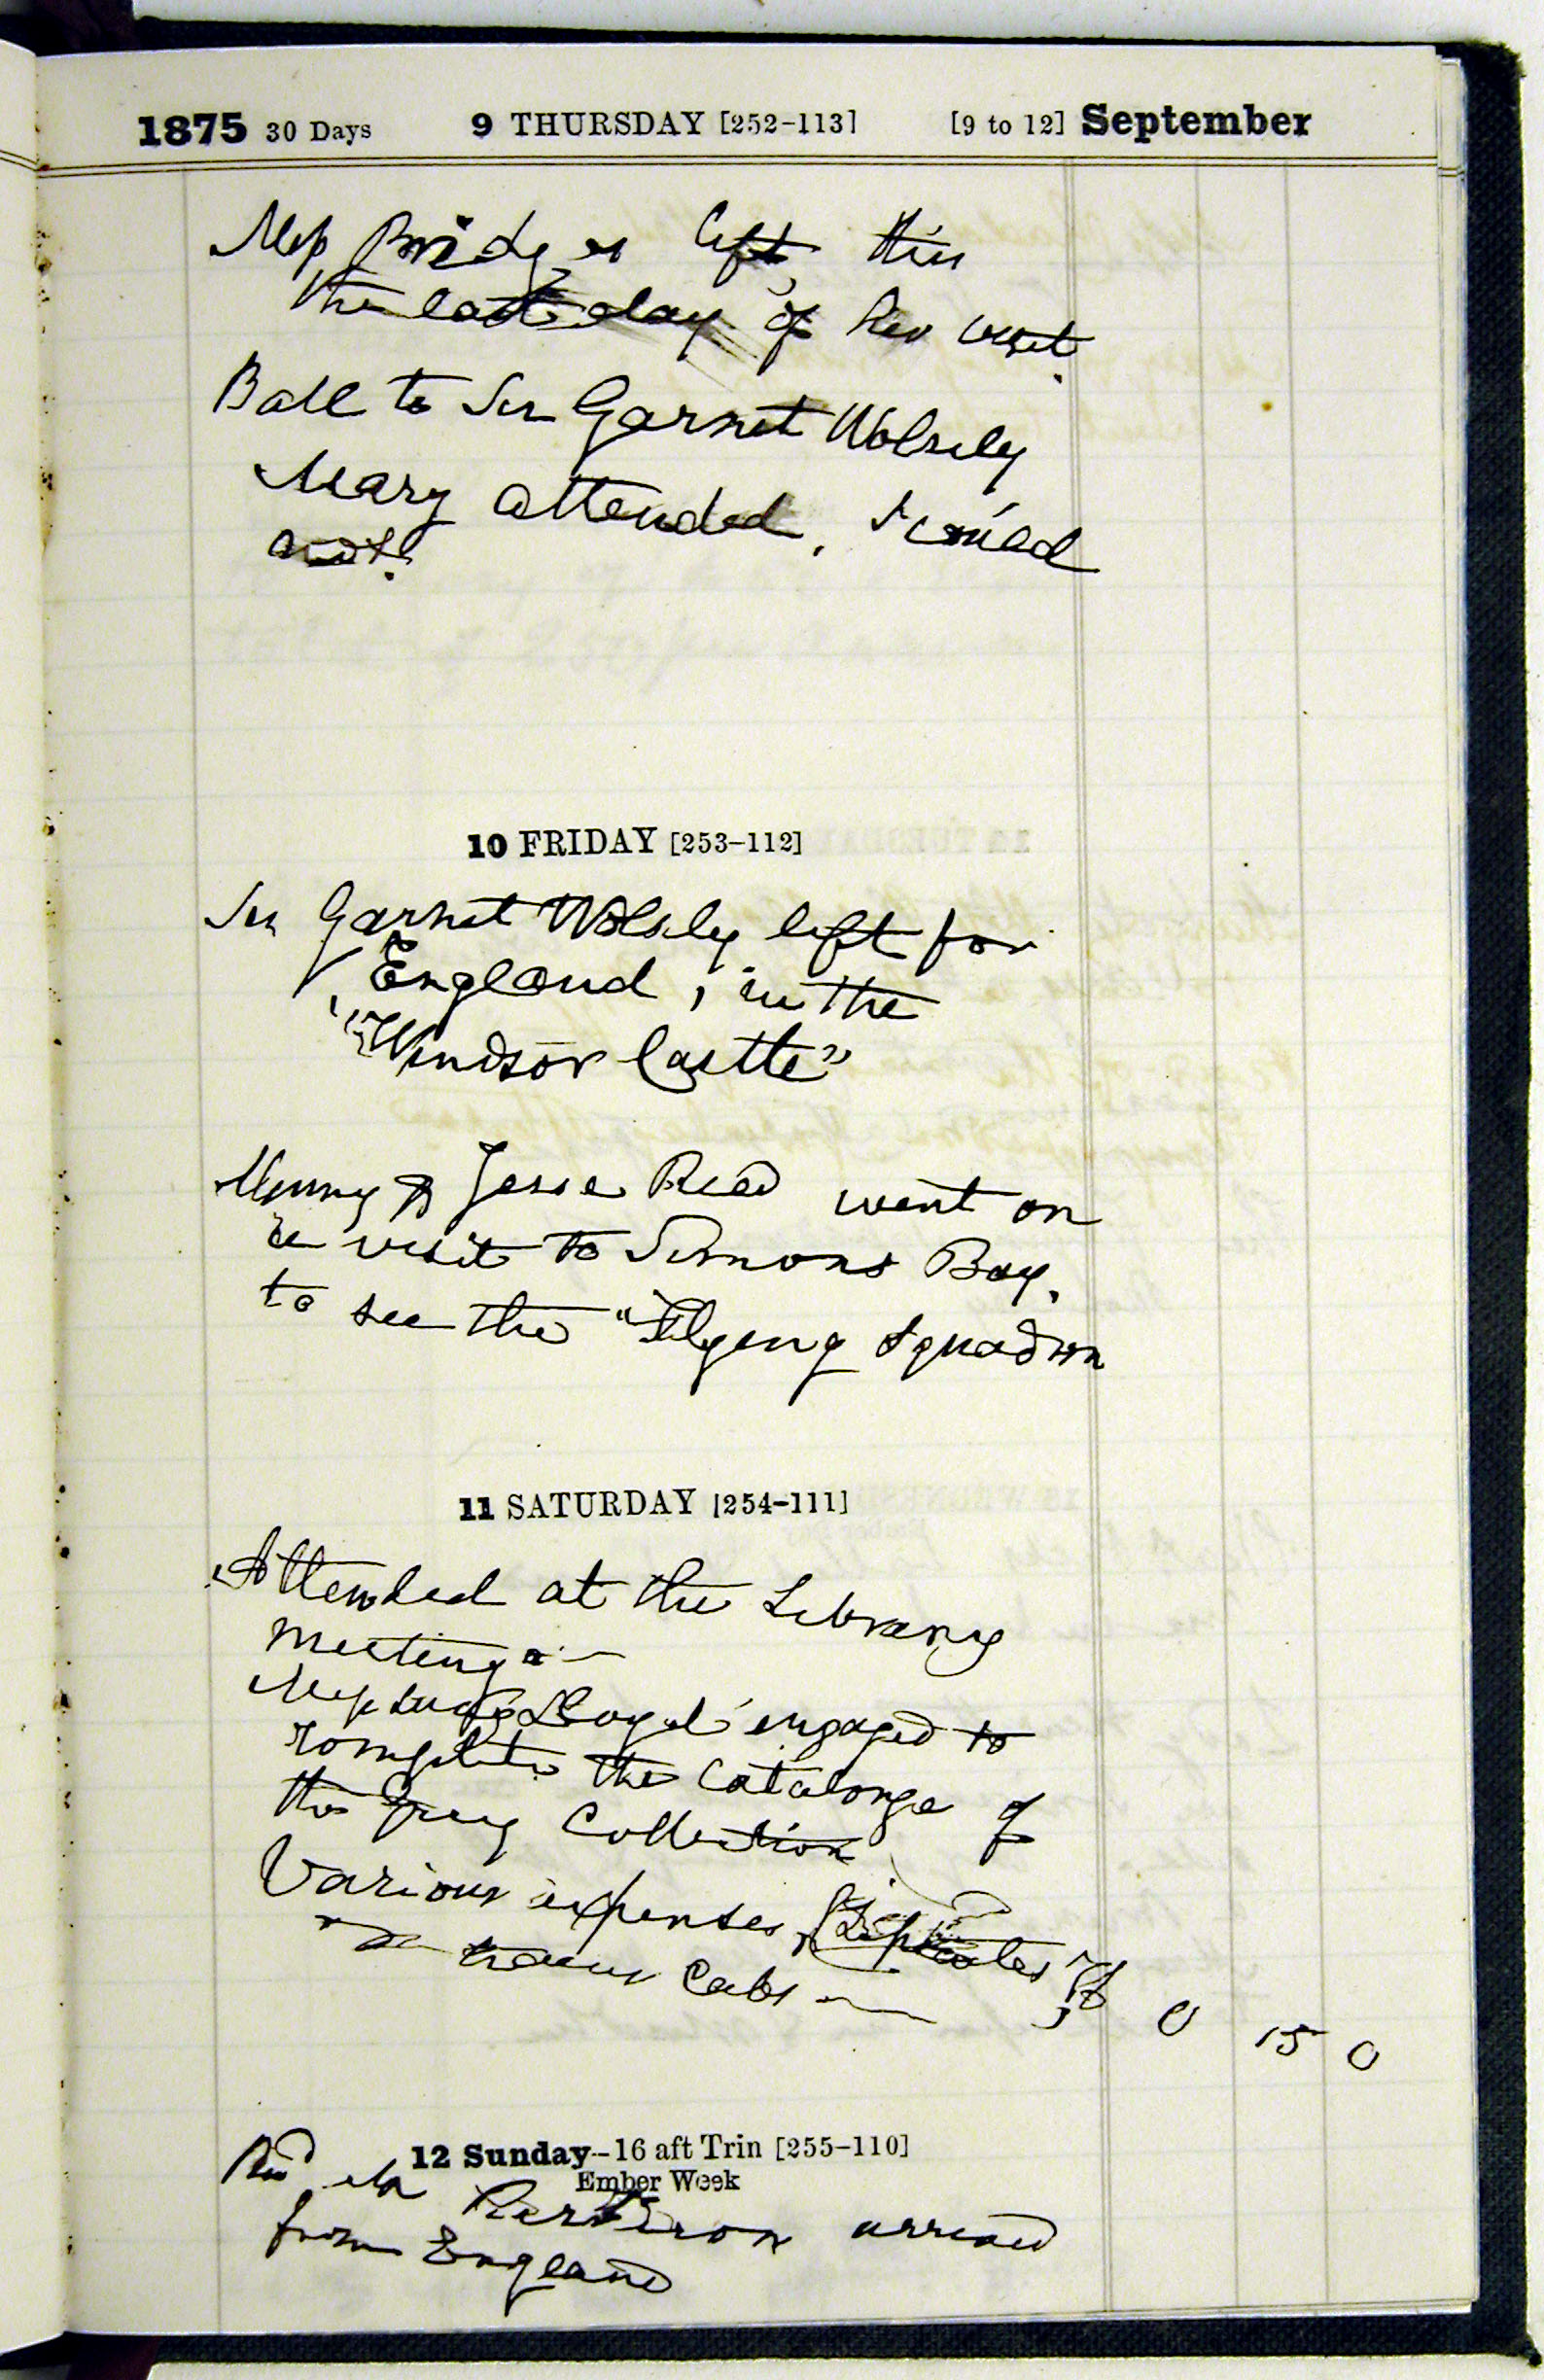 1875 30 Days 9 THURSDAY [252-113] [9 to 12] September
Miss Bridges left this
the last day of her visit.
Ball to Sir Garnet Wolsely
Mary attended, I could
not.
10 FRIDAY [253-112]
Sir Garnet Wolsely left for
England, in the
"Windsor Castle"
Minny & Jesse Read went on
a visit to Simons Bay,
to see the "Flying Squadron
11 SATURDAY [254-111]
Attended at the Library
meeting
Miss Lucy Lloyd engaged to
complete the Catalogue of
the Grey Collection
Various expenses,
cabs
0 15 0
12 Sunday--16 aft Trin [255-110]
Ember Week
Revd Mr arrived
from England